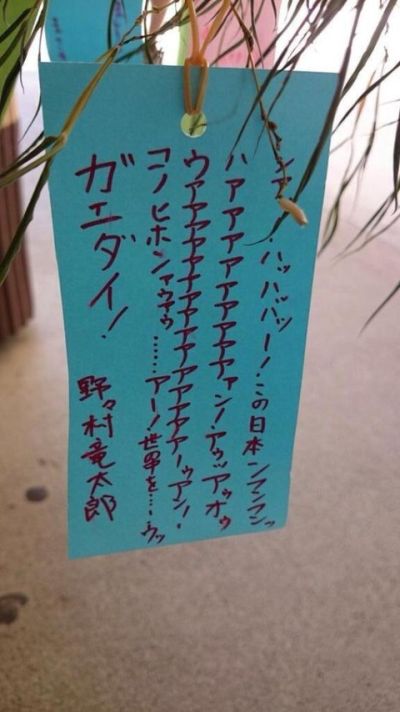 ンァ！ハッハッハッー！この日本ンフンフンッ
ハアアアアアアアアアァン！アゥッアゥオゥ
ウァアアアアアアアアアアアアアーゥアン！
コノヒホンァゥァゥ……アー！世界を…ゥッ
ガエダイ！
野々村竜太郎